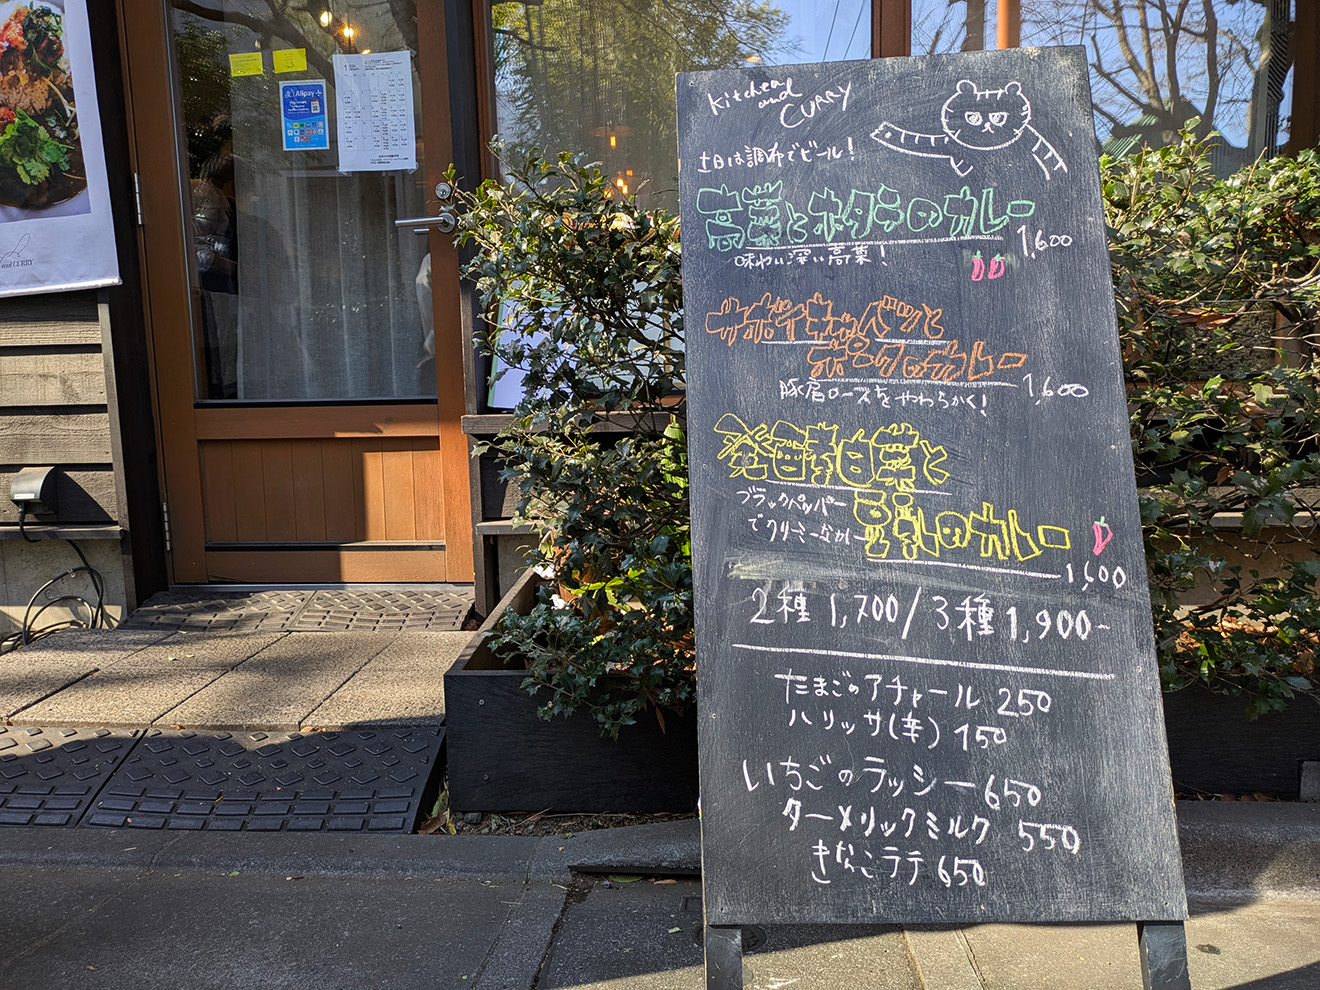 and CURRY
Alipay+
Kitchen
and
CURRY
土日は調布でビール!
高菜とホタテのカレー
1,600
味わい深い高菜!
サボイキャベツと
ポークのカレー
1,600
豚肩ロースをやわらかく!
発酵白菜と
豆乳のカレー
ブラックペッパー
でクリーミーなカレー
1,600
2種 1,700/3種 1,900-
たまごのアチャール 250
ハリッサ(辛) 150
いちごのラッシー 650
ターメリックミルク 550
きなこラテ 650